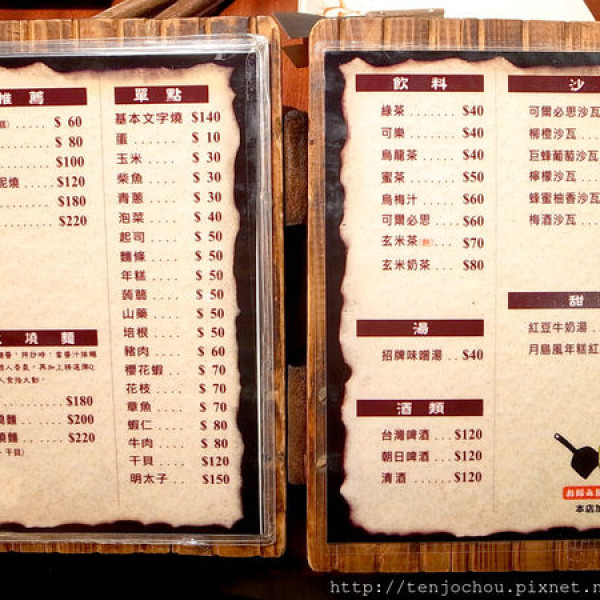 推薦
$ 60
$ 80
$100
泥燒 ..... $120
$180
$220
燒麵
$180
燒麵 ... $200
燒麵 ... $220
單點
基本文字燒 $140
蛋 ....... $ 10
玉米 .... $ 30
柴魚 .... $ 30
青蔥 .... $ 30
泡菜 .... $ 40
起司 .... $ 50
麵條 .... $ 50
年糕 .... $ 50
蒟蒻 .... $ 50
山藥 .... $ 50
培根 .... $ 50
豬肉 .... $ 60
櫻花蝦 .. $ 70
花枝 .... $ 70
章魚 .... $ 70
蝦仁 .... $ 80
牛肉 .... $ 80
干貝 .... $120
明太子 .. $150
飲料
綠茶 ....... $40
可樂 ....... $40
烏龍茶 .... $40
蜜茶 ....... $50
烏梅汁 .... $60
可爾必思 .. $60
玄米茶 ... $70
玄米奶茶 ... $80
湯
招牌味噌湯 .. $40
酒類
台灣啤酒 ... $120
朝日啤酒 ... $120
清酒 ...... $120
沙
可爾必思沙瓦
柳橙沙瓦 ....
巨蜂葡萄沙瓦
檸檬沙瓦 ....
蜂蜜柚香沙瓦
梅酒沙瓦 ....
甜
紅豆牛奶湯 ...
月島風年糕紅
本店加
http://tenjochou.pixnet.n